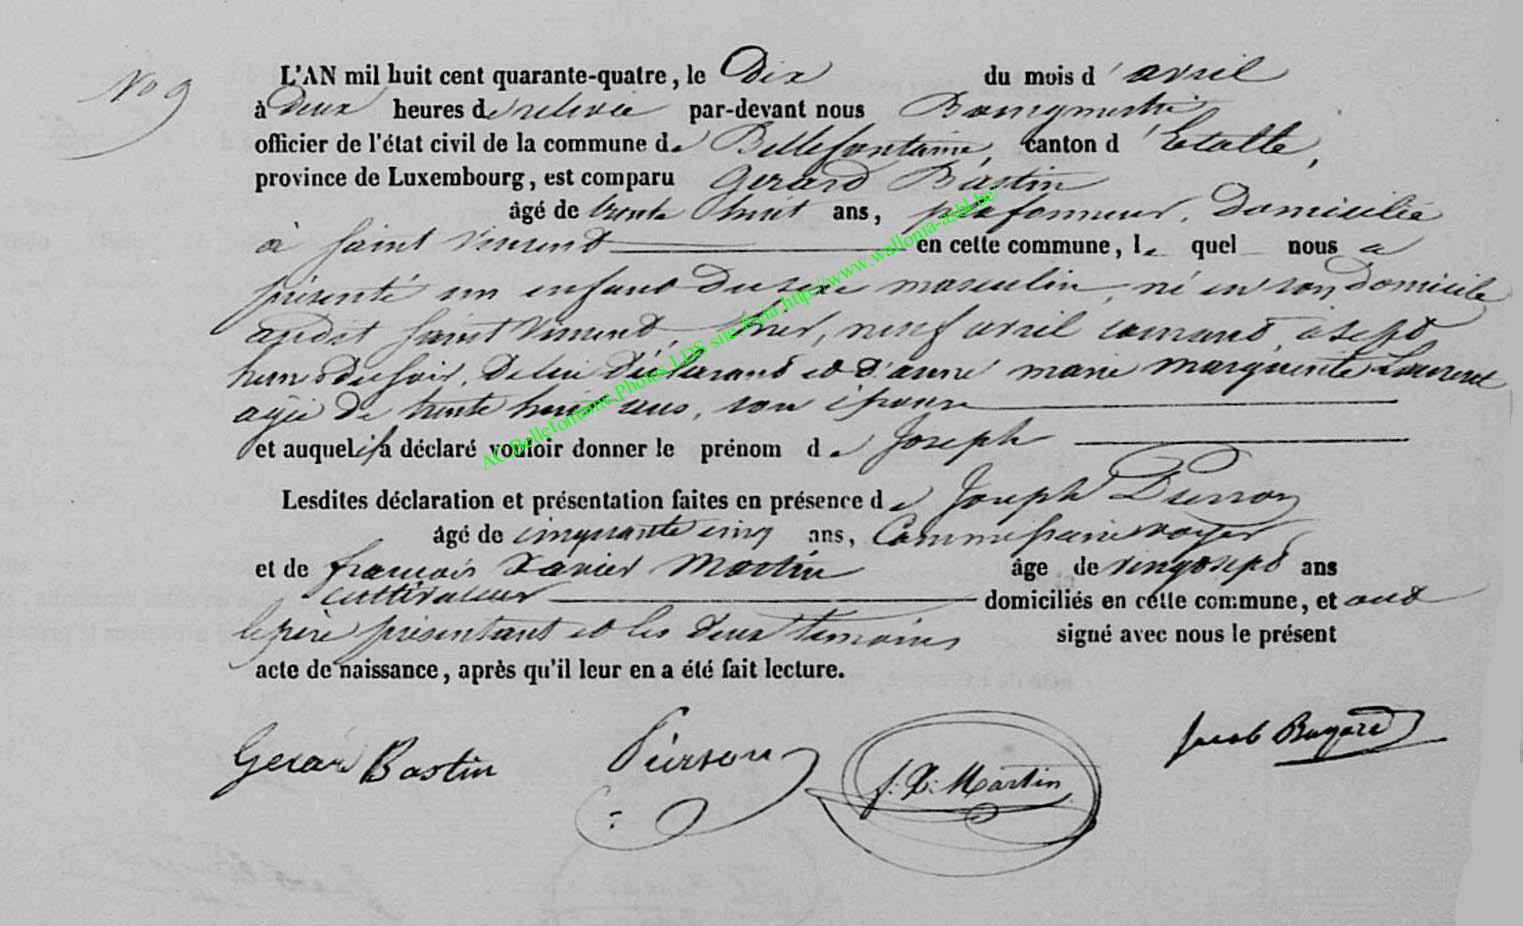 No 9
L'AN mil huit cent quarante-quatre, le Dix du mois d' avril
à Deux heures de relevée par-devant nous Bourgmestre
officier de l'état civil de la commune de Bellefontaine, canton d'Etalle,
province de Luxembourg, est comparu Gerard Bastin
âgé de trente huit ans, plafonneur, Domicilié
à Saint Vincent en cette commune, le quel nous a
présenté un enfant Du sexe masculin, né en son Domicile
audit Saint Vincent, hier, neuf avril courant, à sept
heures du soir, De lui Déclarant et d'anne marie marguerite
agée De trente huit ans, son épouse
et auquel il a déclaré vouloir donner le prénom de Joseph
Lesdites déclaration et présentation faites en présence de Joseph Pierson
âgé de cinquante cinq ans, Commissaire voyer
et de françois Xavier Martin âge de vingt sept ans
cultivateur domiciliés en cette commune, et ont
le père présentant et les deux temoins signé avec nous le présent
acte de naissance, après qu'il leur en a été fait lecture.
Gerard Bastin Pierson f: X: Martin Jacob
AC Bellefontaine Photos LDS site Isvia http://www.wallonia-asbl.be/